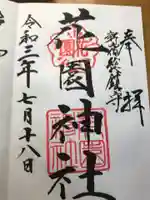 奉拝
新宿総鎮守
花園神社
令和三年七月十八日